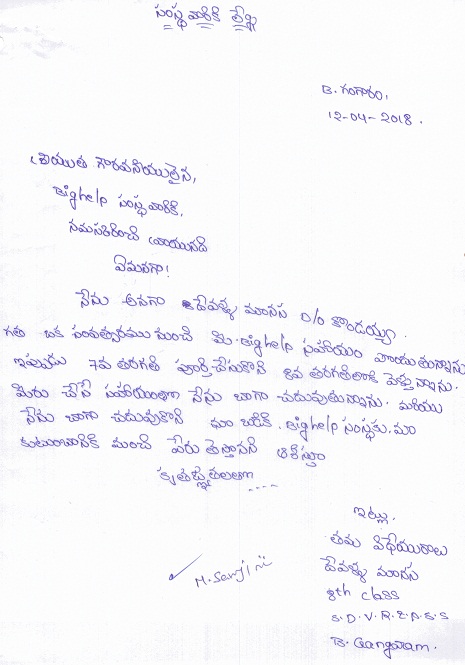 సంస్థ వారికి లేఖ
B. గంగారం,
12-04-2018.
శ్రీయుత గౌరవనీయులైన,
Bighelp సంస్థ వారికి,
నమస్కరించి వ్రాయునది
ఏమనగా!
నేను అనగా దేవళ్ళ మానస D/o కొండయ్య.
గత ఒక సంవత్సరము నుంచి మీ. Bighelp సహాయం పొందుతున్నాను
ఇప్పుడు 7వ తరగతి పూర్తిచేసుకొని 8వ తరగతిలోకి వెళ్తున్నాను.
మీరు చేసే సహాయంతో నేను బాగా చదువుతున్నాను. మరియు
నేను బాగా చదువుకొని మా బడికి. Bighelp సంస్థకు. మా
కుటుంబానికి మంచి పేరు తెస్తానని ఆశిస్తూ
కృతజ్ఞతలతో
....
ఇట్లు.
తమ విధేయురాలు
దేవళ్ళ మానస
8th class
S.D.V.R.Z.P.S.S
B. Gangaram.